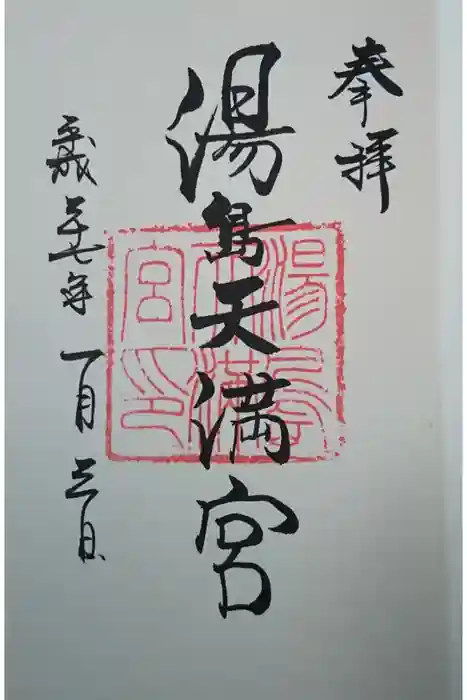 奉拝
湯島天満宮
平成二十七年一月三日
湯島
天満
宮印